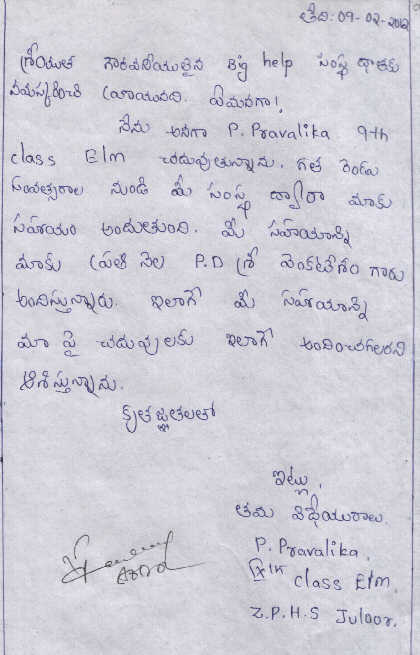 తేది: 09-02-2012
శ్రీయుత గౌరవనీయులైన Big help సంస్థ దాతకు
నమస్కరించి వ్రాయునది. ఏమనగా!
నేను అనగా P. Pravalika 9th
class E/m చదువుతున్నాను. గత రెండు
సంవత్సరాల నుండి మీ సంస్థ ద్వారా మాకు
సహాయం అందుతుంది. మీ సహాయాన్ని
మాకు ప్రతి నెల P.D శ్రీ వెంకటేశం గారు
అందిస్తున్నారు. ఇలాగే మీ సహాయాన్ని
మా పై చదువులకు ఇలాగే అందించగలరని
ఆశిస్తున్నాను.
కృతజ్ఞతలతో
ఇట్లు,
తమ విధేయురాలు.
P. Pravalika,
IXth class E/m,
Z.P.H.S Juloor.